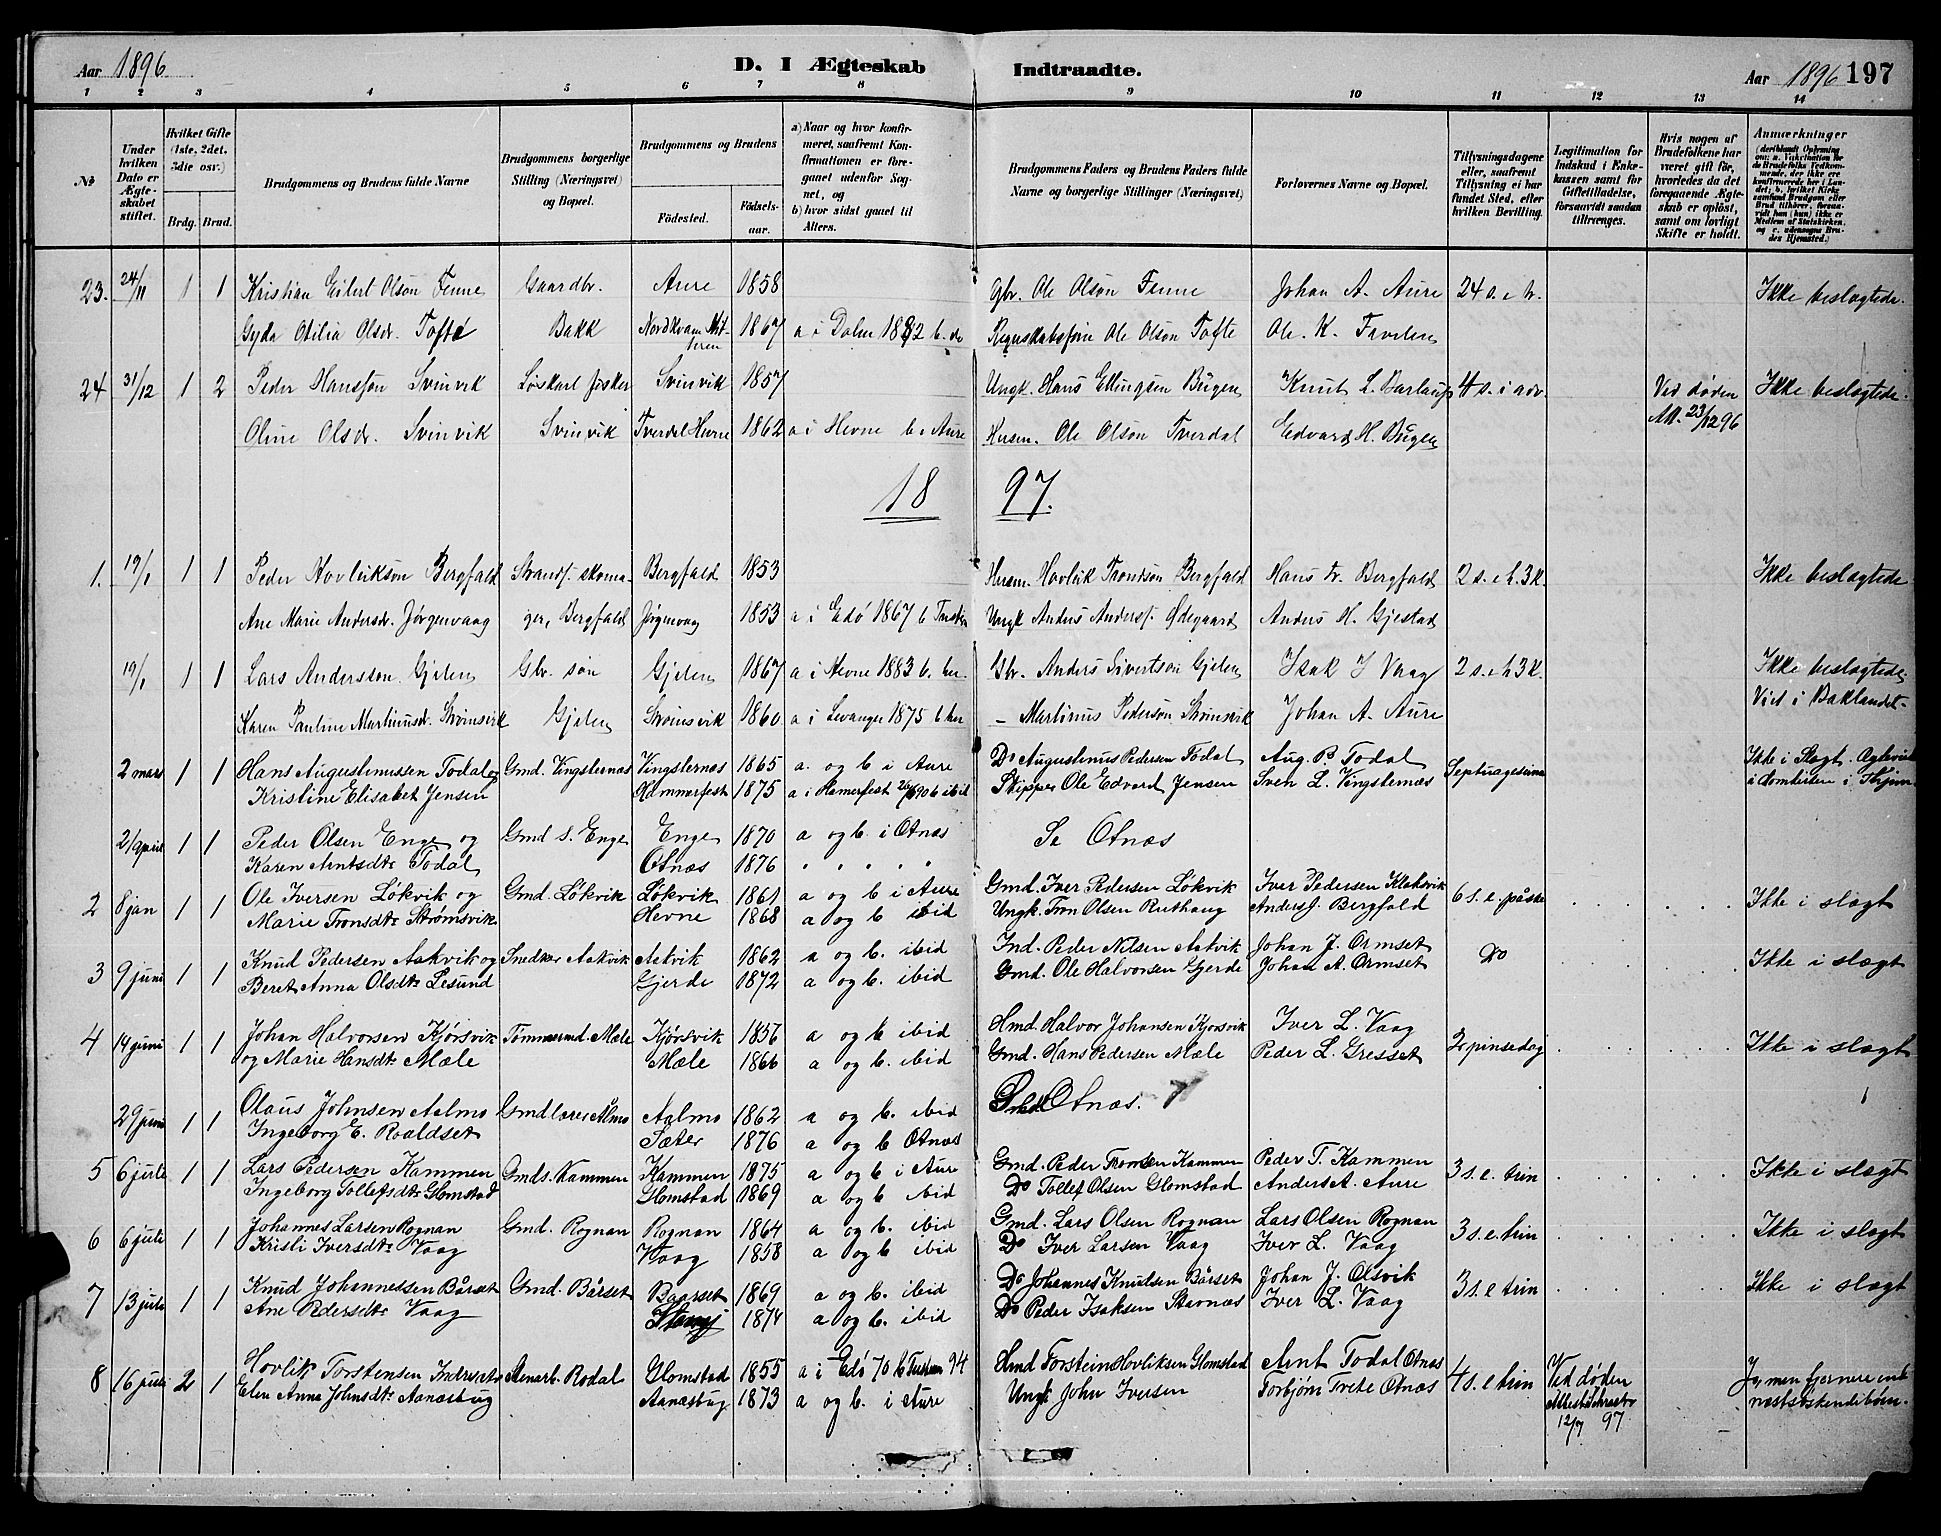 Aar 1896 D. I Ægteskab Indtraadte. Aar 1896 197
1 2 3 4 5 6 7 8 9 10 11 12 13 14
No
Under hvilken Dato er Ægteskabet stiftet.
Hvilket Gifte (1ste, 2det, 3die osv.)
Brdg. Brud.
Brudgommens og Brudens fulde Navne
Brudgommens borgerlige Stilling (Næringsvei) og Bopæl.
Brudgommens og Brudens
Fødested. Fødselsaar.
a) Naar og hvor konfirmeret, saafremt Konfirmationen er foregaaet udenfor Sognet, og
b) hvor sidst gaaet til Alters.
Brudgommens Faders og Brudens Faders fulde Navne og borgerlige Stillinger (Næringsvei)
Forlovernes Navne og Bopæl.
Tillysningsdagene eller, saafremt Tillysning ei har fundet Sted, efter hvilken Bevilling.
Legitimation for Indskud i Enkekassen samt for Giftetilladelse, forsaavidt saadan tiltrænges.
Hvis nogen af Brudefolkene har været gift før, hvorledes da det foregaaende Ægteskab er opløst, samt om lovligt Skifte er holdt.
Anmærkninger
23. 24/11 1 1 Kristian Eilert Olson Fenne Gaardbr. Aure 1858 Gbr. Ole Olson Fenne Johan A. Aure 24 s. e. tr. Ikke beslagtede.
Gyda Otilia Olsdr. Tofte Bakk Nordkvam 1867 a i Dolm 1882 b. do Ole Olson Tofte Ole. K.
24 31/12 1 2 Peder Hansson Svinvik Løskarl fisker Svinvik 1857 Ungk. Hans Ellingsen Bugen Knut L. 4 s. i adv. Ved døden Ikke beslagtede.
Oline Olsdr. Svinvik Svinvik Tverdal Hevne 1862 a i Hevne b. Aure Husm. Ole Olson Tverdal Edvard H. Bugen Att. 23/12 96
18 97.
1. 19/1 1 1 Peder Hovlikson Bergfald Strands. skoma- Bergfald 1853 Husm. Hovlik Trondson Bergfald Hans Tr. Bergfald 2 s. e h. 3 k. Ikke beslagtede
Ane Marie Andersdr. Jørgenvaag ger, Bergfald Jørgenvaag 1853 a i Edø 1867 b Tustern Ungk Anders Anders. Ødegaard Anders H. Gjestad
19/1 1 1 Lars Andersson Gjelen Gbr. søn Gjelen 1867 a i Hevne 1883 b. her. Gbr. Anders Sivertson Gjelen Isak I Vaag 2 s. e h 3 k. Ikke beslagtede
Karen Pauline Martinusdr. Strømsvik Gjelen Strømsvik 1860 a i Levanger 1875 b her – Martinus Pederson Strømsvik Johan A. Aure Viet i Baklandet
2 mars 1 1 Hans Augustinussen Todal og Gmd. Vingsternæs Vingsternæs 1865 a. og b i Aure Do Augustinus Pedersen Todal Aug. P. Todal Septuagesima Ikke i Slægt. Ægteviet
Kristine Elisabet Jensen Hammerfest 1875 a i Hamerfest 90 b ibid Skipper Ole Edvard Jensen Sven L. Vingsternæs i domkirken i Thjem.
21 april 1 1 Peder Olsen Enge og Gmd s. Enge Enge 1870 a og b. i Otnæs Se Otnæs
Karen Arntsdtr Todal Otnæs 1876 " " " " "
2 8 jan 1 1 Ole Iversen Løkvik og Gmd. Løkvik Løkvik 1861 a og b i Aure Gmd. Iver Pedersen Løkvik Iver Pedersen Klaksvik 6 s. e. påske Ikke i slægt
Marie Tronsdtr Strømsvik Hevne 1868 a og b ibid Ungk. Tron Olsen Ruthaug Anders J. Bergfald
3 9 juni 1 1 Knud Pedersen Aakvik og Snedker Aakvik Aakvik 1862 a og b. ibid Ind. Peder Nilsen Aakvik Johan J. Ormset Do Ikke i slægt
Beret Anna Olsdtr Lesund Gjerde 1872 a og b. ibid Gmd. Ole Halvorsen Gjerde Johan A. Ormset
4 14 juni 1 1 Johan Halvorsen Kjørsvik Tømmermd. Mæle Kjørsvik 1856 a og b ibid Hmd. Halvor Johansen Kjørsvik Iver L. Vaag 2 pinsedag Ikke i slægt
og Marie Hansdtr Mæle Mæle 1866 a og b. ibid Gmd. Hans Pedersen Mæle Peder L. Gresset
29 juni 1 1 Olaus Johnsen Aalmo Gmd lærer Almo Aalmo 1862 a og b. ibid Otnæs.
Ingeborg E. Roaldset Sæter 1876 a og b Otnæs
5 6 juli 1 1 Lars Pedersen Kammen Gmds. Kammen Kammen 1875 a og b i Aure Gmd. Peder Tronsen Kammen Peder T. Kammen 3 s. e. trin Ikke i slægt
Ingeborg Tollefsdtr Glomstad Glomstad 1869 a og b ibid Do Tollef Olsen Glomstad Anders A. Aure
6 6 juli 1 1 Johannes Larsen Rognan Gmd. Rognan Rognan 1864 a og b. ibid Gmd. Lars Olsen Rognan Lars Olsen Rognan 3 s. e. trin Ikke i slægt
Kristi Iversdtr Vaag Vaag 1858 a og b ibid Do Iver Larsen Vaag Iver L. Vaag
7 13 juli 1 1 Knud Johannessen Bårset Gmd. Bårset Baarset 1869 a og b. ibid Do Johannes Knutsen Bårset Johan J. Olsvik 3 s. e trin Ikke i slægt
Ane Pedersdtr Vaag 1874 a og b. ibid Do Peder Isaksen Stavnæs Iver L. Vaag
8 16 juli 2 1 Hovlik Torstensen Stenarb. Rodal Glomstad 1855 a i Edø 70 b Tustern 94 Hmd Torstein Hovliksen Glomstad Arnt Todal Otnæs 4 s. e trin Ved døden Ja, men fjernere end
Elen Anna Johnsdtr Aanæsbug Aanæsbug 1873 a og b. i Aure Ungk John Iversen Torbjørn Trete Otnæs 12/7 97 næstsøskendebørn.